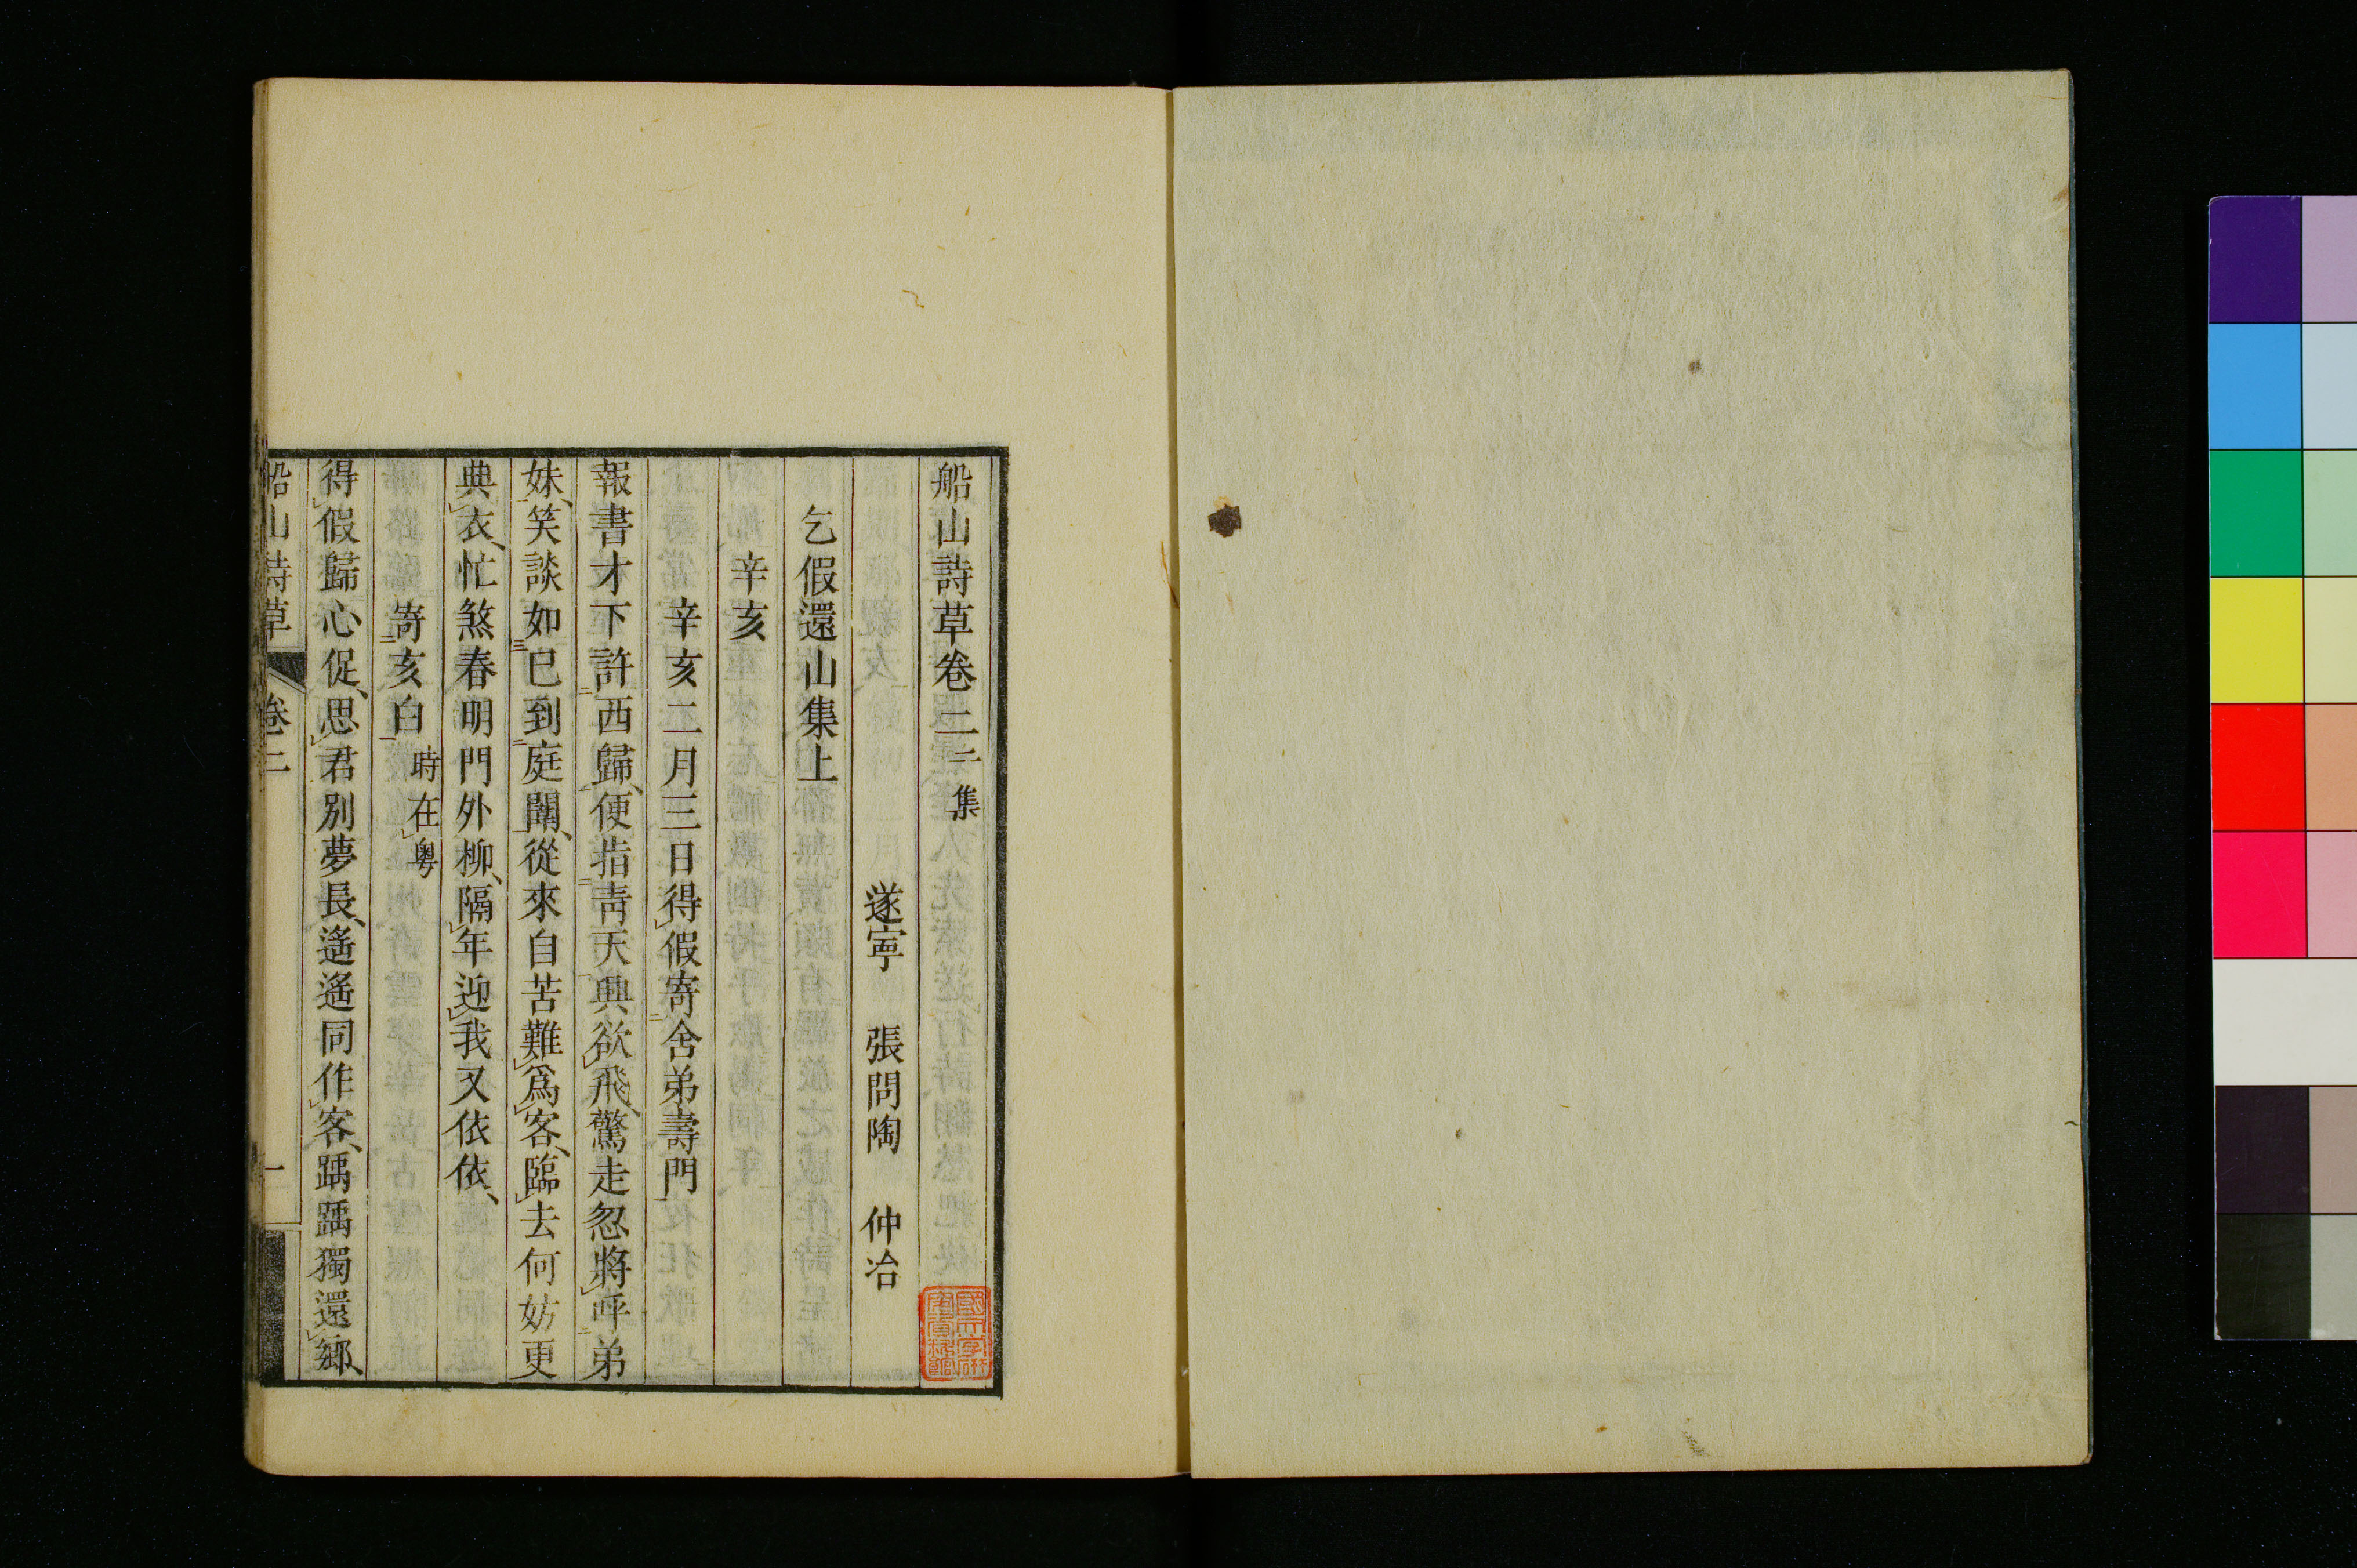 船山詩草卷二二集
遂寧　張問陶　仲冶
乞假還山集上
辛亥
辛亥二月三日得假寄舍弟壽門
報書才下許西歸、便指靑天興欲飛、驚走忽將呼弟
妹、笑談如已到庭闈、從來自苦難爲客、臨去何妨更
典衣、忙煞春明門外柳、隔年迎我又依依、
寄亥白時在粵
得假歸心促、思君別夢長、遙遙同作客、踽踽獨還鄉、
船山詩草　卷二　一